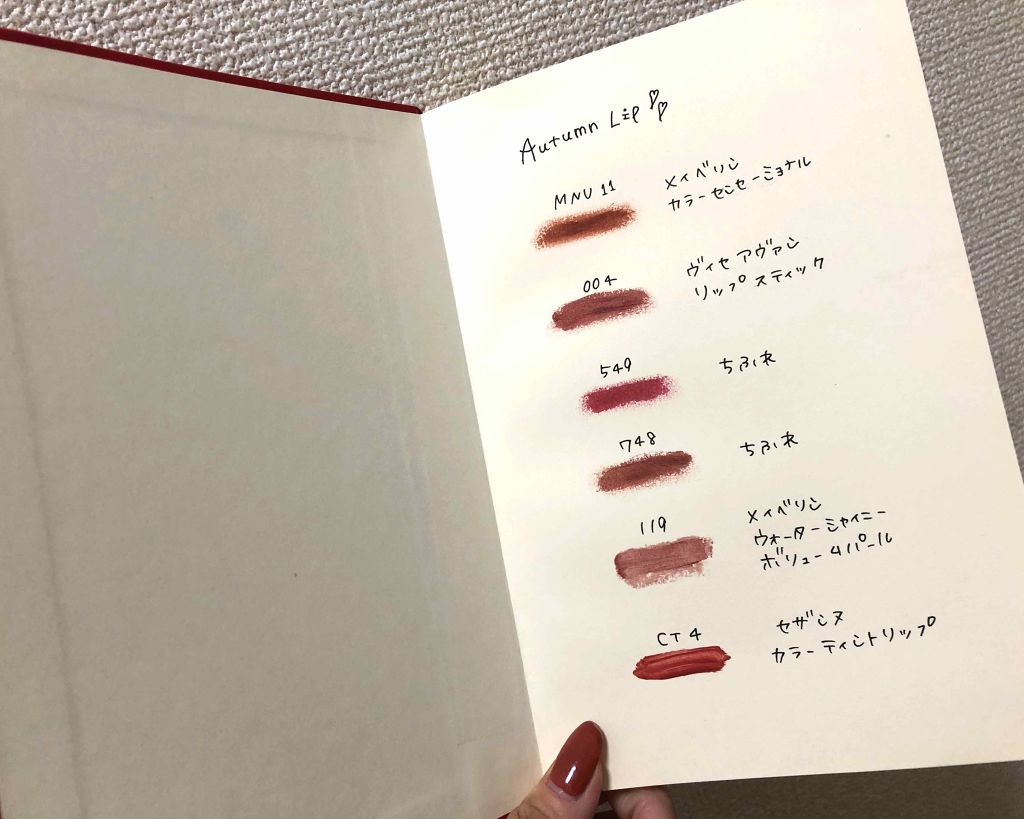 Autumn Lip
MNU 11
メイベリン
カラーセンセーショナル
004
ヴィセ アヴァン
リップスティック
549
ちふれ
748
ちふれ
119
メイベリン
ウォーターシャイニー
ボリュームパール
CT 4
セザンヌ
カラーティントリップ